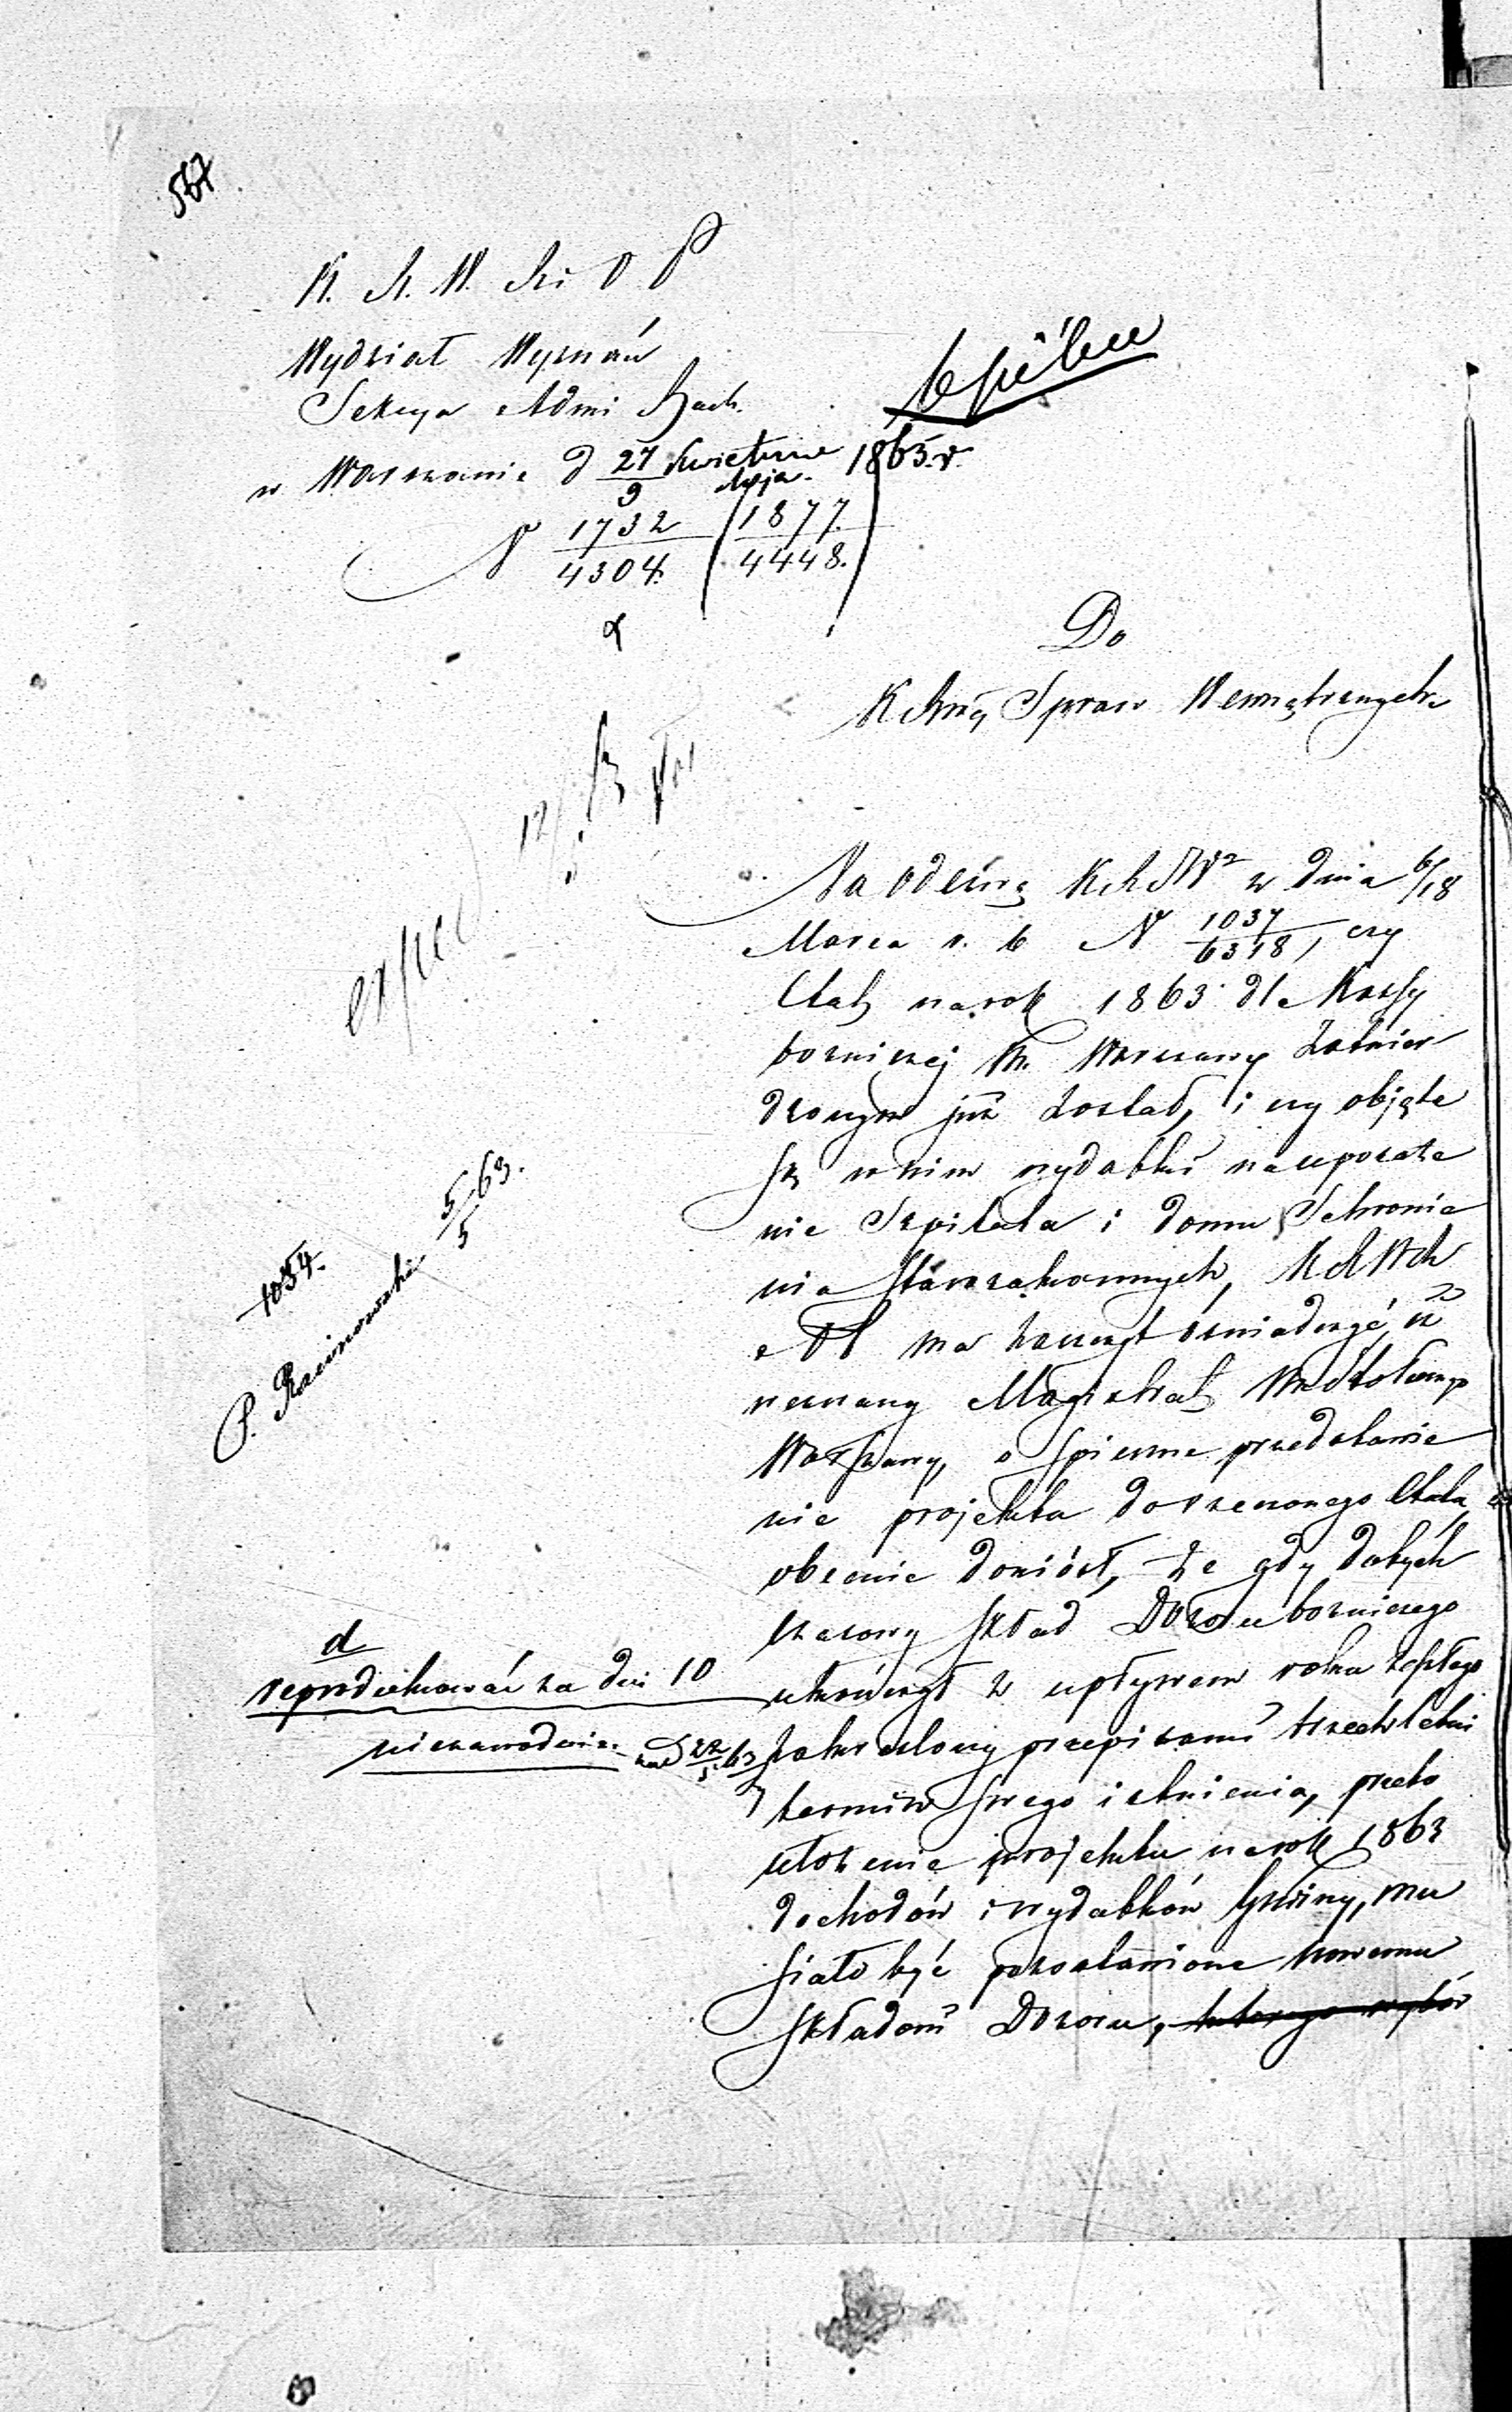 567
K. R. W. R i O P
Wydział Wyznań
Sekcya Admi Rach.
w Warszawie d 27 Kwietnia 1863 r.
9 Maja
N 1732/4304. 1877/4448.
Do
K Rzą Spraw Wewnętrznych
12/5
exped
Na odezwę K R S W z dnia 6/18
Marca r. b N 1037/6318, czy
Etat na rok 1863 dla Kassy
bożniczej M. Warszawy zatwier
dzonym już został, i czy objęte
są w nim wydatki na uposaże
nie Szpitala i domu Schronie
nia Starozakonnych, K R W R
i O P ma zaszczyt oświadczyć, iż
wezwany Magistrat M. Stołecznego
Warszawy, o spieszne przedstawie
nie projektu do rzeczonego Etatu,
obecnie doniósł, że gdy dotych
czasowy skład Dozoru bożniczego
ukończył z upływem roku zeszłego
zakreślony przepisami trzechletni
termin swego istnienia, przeto
ułożenie projektu na rok 1863
dochodów i wydatków Gminy, mu
siało być pozostawione nowemu
składowi Dozoru, którego wybór
1054.
P. 5/5 63.
d
reprodukować za dni 10
niezawodnie. 22/5 63